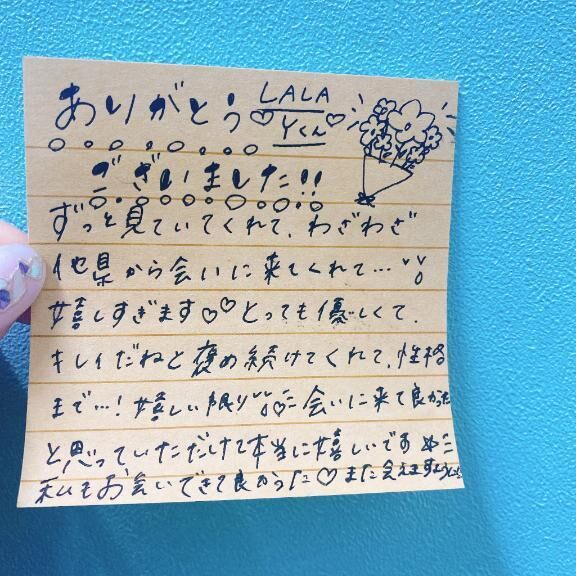 ありがとう♡LALA♡
Yくん
ございました!!
ずっと見ていてくれて、わざわざ
他県から会いに来てくれて…
嬉しすぎます♡♡とっても優しくて、
キレイだねと褒め続けてくれて、性格
まで…!嬉しい限り♡会いに来て良かった
と思っていただけて本当に嬉しいです
私もお会いできて良かった♡また会えますように